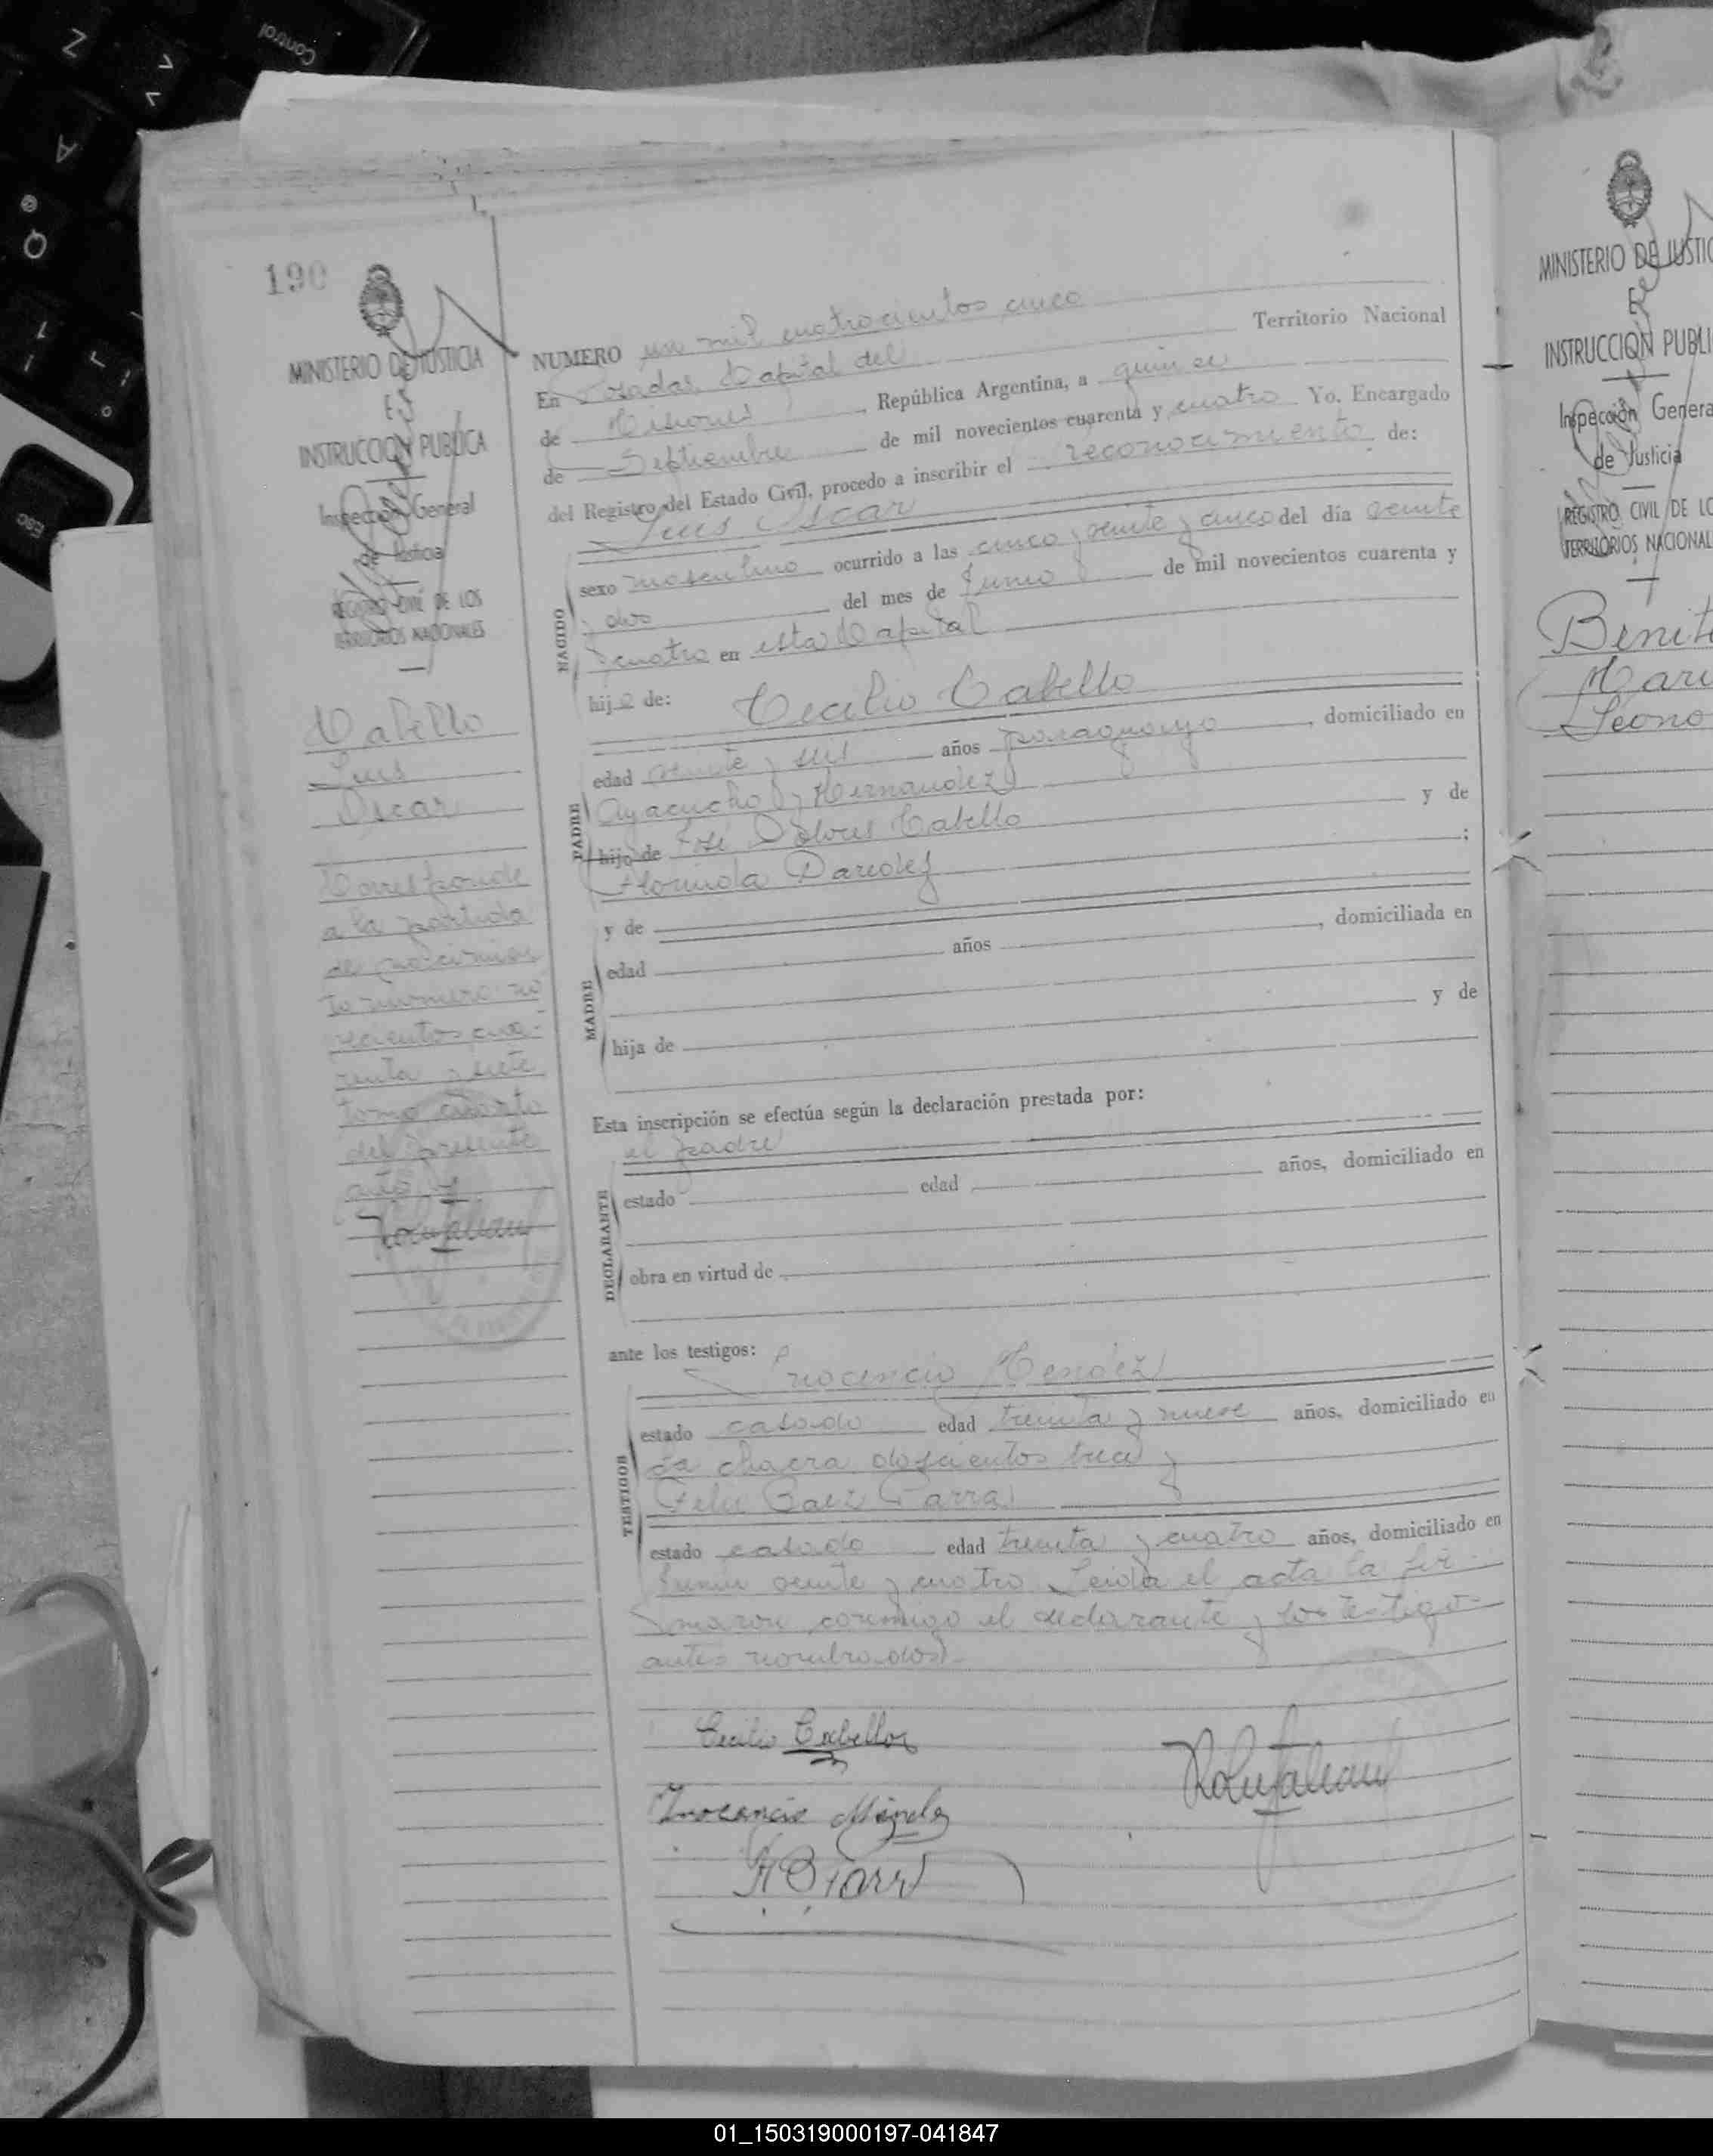 190
MINISTERIO DE JUSTICIA
E
INSTRUCCION PUBLICA
Inspección General
de Justicia
REGISTRO CIVIL DE LOS
TERRITORIOS NACIONALES
Cabello
Luis
Oscar
Corresponde
a la partida
de nacimien
to numero no
vecientos cua-
renta y siete
tomo cuarto
del presente
año
NUMERO un mil cuatrocientos cinco
En Posadas, Capital del Territorio Nacional
de Misiones, República Argentina, a quince
de Septiembre de mil novecientos cuarenta y cuatro Yo, Encargado
del Registro del Estado Civil, procedo a inscribir el reconocimiento de:
Luis Oscar
NACIDO
sexo masculino ocurrido a las cinco y veinte y cinco del día veinte
y dos del mes de Junio de mil novecientos cuarenta y
cuatro en esta Capital
hijo de: Cecilio Cabello
PADRE
edad veinte y seis años paraguayo, domiciliado en
Ayacucho y Hernandez
hijo de José Dolores Cabello y de
Florinda Paredes;
y de
MADRE
edad años , domiciliada en
hija de y de
Esta inscripción se efectúa según la declaración prestada por:
el padre
DECLARANTE
estado edad años, domiciliado en
obra en virtud de
ante los testigos:
Inocencio Mendez
TESTIGOS
estado casado edad treinta y nueve años, domiciliado en
la chacra doscientos trece y
Felix Baez Parra
estado casado edad treinta y cuatro años, domiciliado en
Junin veinte y cuatro. Leida el acta la fir-
maron conmigo el declarante y los testigos
antes nombrados.
Cecilio Cabello
Inocencio Mendez
MINISTERIO DE JUSTIC
E
INSTRUCCION PUBLI
Inspección Genera
de Justicia
REGISTRO CIVIL DE LO
TERRITORIOS NACIONAL
Benit
Mari
Leono
Control
Z
A
Q
Esc
01_150319000197-041847